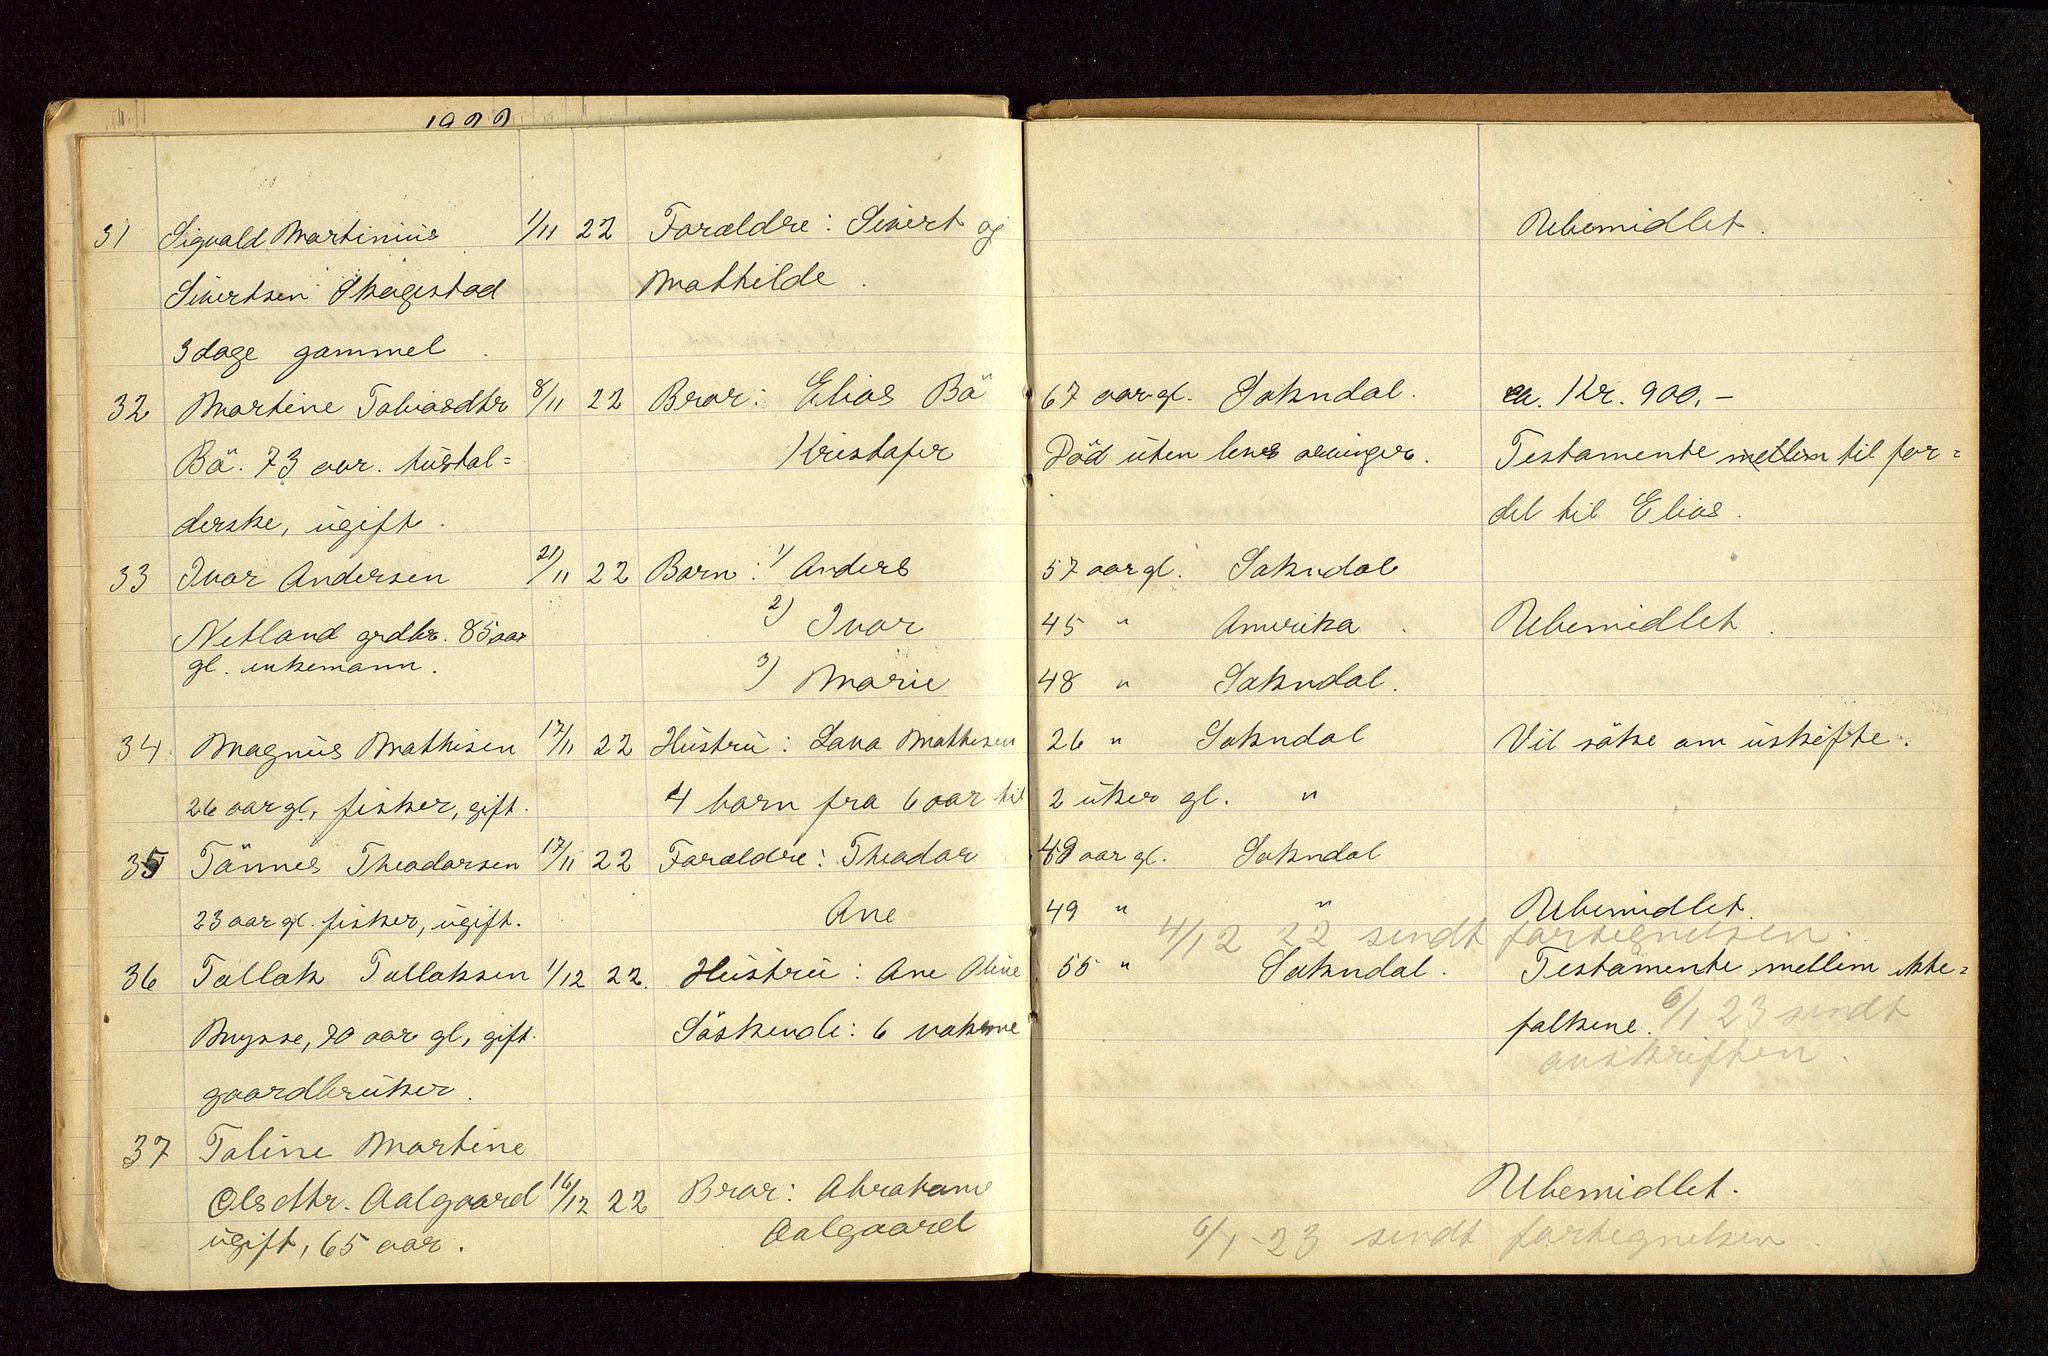 1922
31 Sigvald Martinius 1/11 22 Forældre: Sivert og Ubemidlet.
Sivertsen Skogestad Mathilde.
3 dage gammel.
32 Martine Tobiasdtr 8/11 22 Bror: Elias Bö 67 aar gl. Sokndal. ca. Kr. 900,-
Bö. 73 aar. hushol= Kristofer Död uten livsarvinger. Testamente mellem til for=
derske, ugift. del til Elias.
33 Ivar Andersen 21/11 22 Barn: 1) Anders 57 aar gl. Sokndal
Netland grdbr. 85 aar 2) Ivar 45 " Amerika. Ubemidlet.
gl. enkemann. 3) Marie 48 " Sokndal.
34. Magnus Mathisen 17/11 22 Hustru: Lava Mathisen 26 " Sokndal Vil söke om uskifte.
26 aar gl, fisker, gift. 4 barn fra 6 aar til 2 uker gl. "
35 Tönnes Theodorsen 17/11 22 Forældre: Theodor 49 aar gl. Sokndal
23 aar gl. fisker, ugift. Ane 49 " " Ubemidlet.
4/12 22 sendt fortegnelsen.
36 Tollak Tollaksen 1/12 22. Hustru: Ane Oline 55 " Sokndal. Testamente mellem ekte=
Mysse, 70 aar gl, gift. Söskende: 6 voksne folkene. 6/1 23 sendt
gaardbruker. avskriften.
37 Toline Martine
Olsdtr. Aalgaard 16/12 22 Bror: Abraham Ubemidlet.
ugift, 65 aar. Aalgaard 6/1 - 23 sendt fortegnelsen.